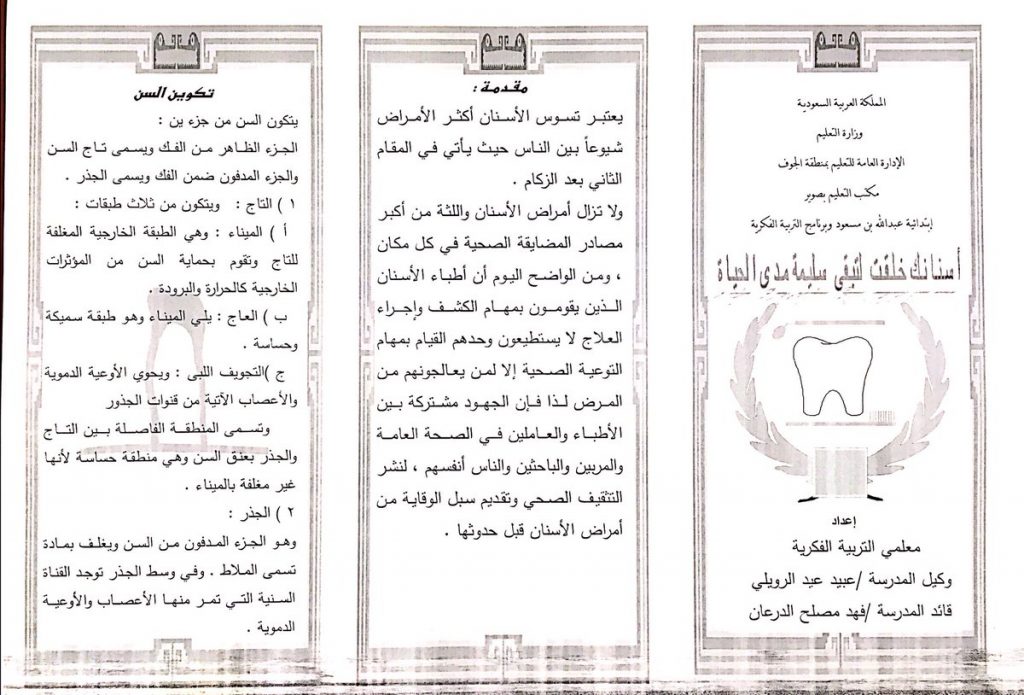 المملكة العربية السعودية
وزارة التعليم
الإدارة العامة للتعليم بمنطقة الجوف
مكتب التعليم بصوير
إبتدائية عبدالله بن مسعود وبرنامج التربية الفكرية
أسنانك خلقت لتبقى سليمة مدى الحياة
إعداد
معلمي التربية الفكرية
وكيل المدرسة /عبيد عيد الرويلي
قائد المدرسة /فهد مصلح الدرعان
مقدمة :
يعتبر تسوس الأسنان أكثر الأمراض
شيوعاً بين الناس حيث يأتي في المقام
الثاني بعد الزكام .
ولا تزال أمراض الأسنان واللثة من أكبر
مصادر المضايقة الصحية في كل مكان
، ومن الواضح اليوم أن أطباء الأسنان
الذين يقومون بمهام الكشف وإجراء
العلاج لا يستطيعون وحدهم القيام بمهام
التوعية الصحية إلا لمن يعالجونهم من
المرض لذا فإن الجهود مشتركة بين
الأطباء والعاملين في الصحة العامة
والمربين والباحثين والناس أنفسهم ، لنشر
التثقيف الصحي وتقديم سبل الوقاية من
أمراض الأسنان قبل حدوثها .
تكوين السن
يتكون السن من جزء ين :
الجزء الظاهر من الفك ويسمى تاج السن
والجزء المدفون ضمن الفك ويسمى الجذر .
١ ) التاج : ويتكون من ثلاث طبقات :
أ ) الميناء : وهي الطبقة الخارجية المغلفة
للتاج وتقوم بحماية السن من المؤثرات
الخارجية كالحرارة والبرودة .
ب ) العاج : يلي الميناء وهو طبقة سميكة
وحساسة .
ج )التجويف اللبى : ويحوي الأوعية الدموية
والأعصاب الآتية من قنوات الجذور
وتسمى المنطقة الفاصلة بين التاج
والجذر بعنق السن وهي منطقة حساسة لأنها
غير مغلفة بالميناء .
٢ ) الجذر :
وهو الجزء المدفون من السن ويغلف بمادة
تسمى الملاط . وفي وسط الجذر توجد القناة
السنية التي تمر منها الأعصاب والأوعية
الدموية .